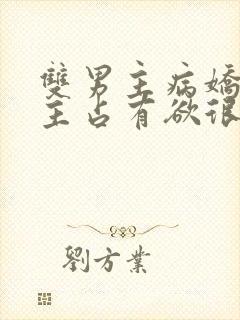 雙男主病嬌
主占有欲很
劉方業